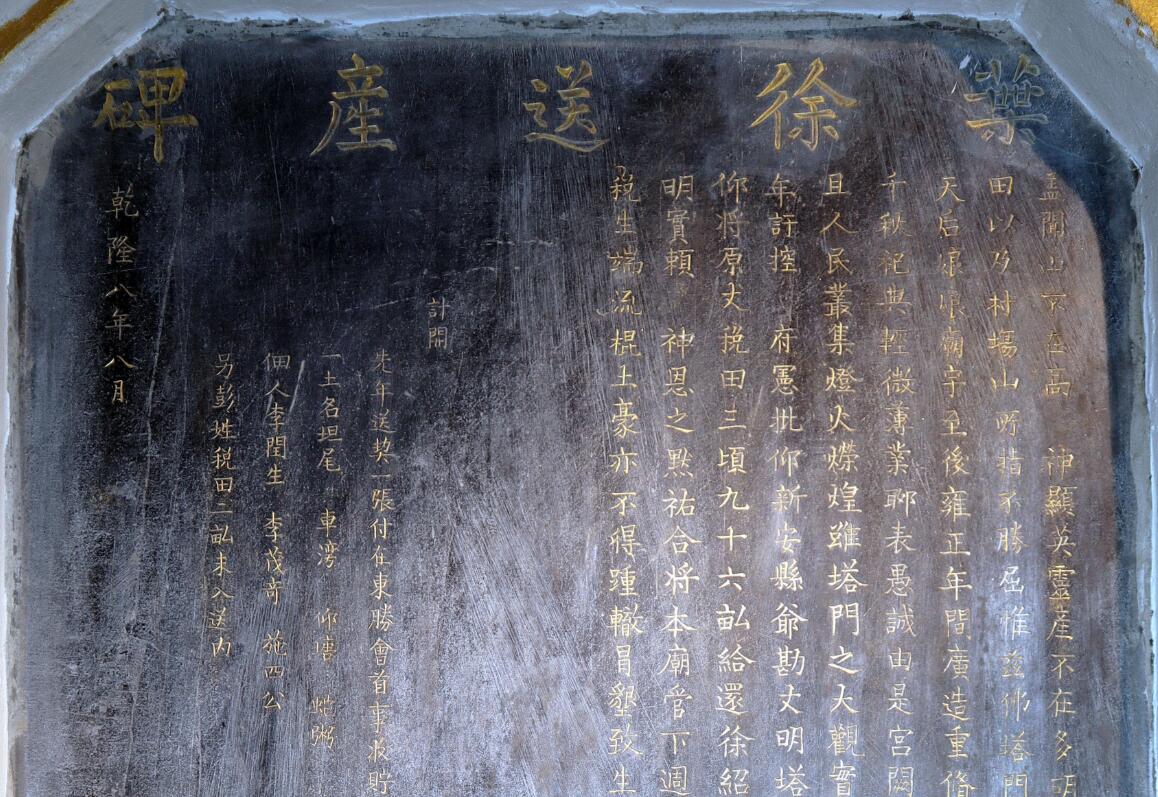 葉徐送產碑
盖聞山不在高　神顯英靈產不在多明
田以及村場山所指不勝屈惟茲佛塔門
天后娘娘廟宇至後雍正年間廣造重脩
千秋祀典輕微薄業聊表愚誠由是宮闕
且人民叢集燈火熒煌雖塔門之大觀實
年訐控　府憲批仰新安縣爺勘丈明塔
仰將原丈稅田三頃九十六畝給還徐紹
明實賴　神恩之黙祐合將本廟管下週
稅生端流棍土豪亦不得踵轍冒墾致生
計開
先年送契一張付在東勝會首事收貯
一土名坦尾　車灣　仰塘　粥
佃人李閏生　李茂竒　施四公
另彭姓税田二畝未入送内
乾隆八年八月